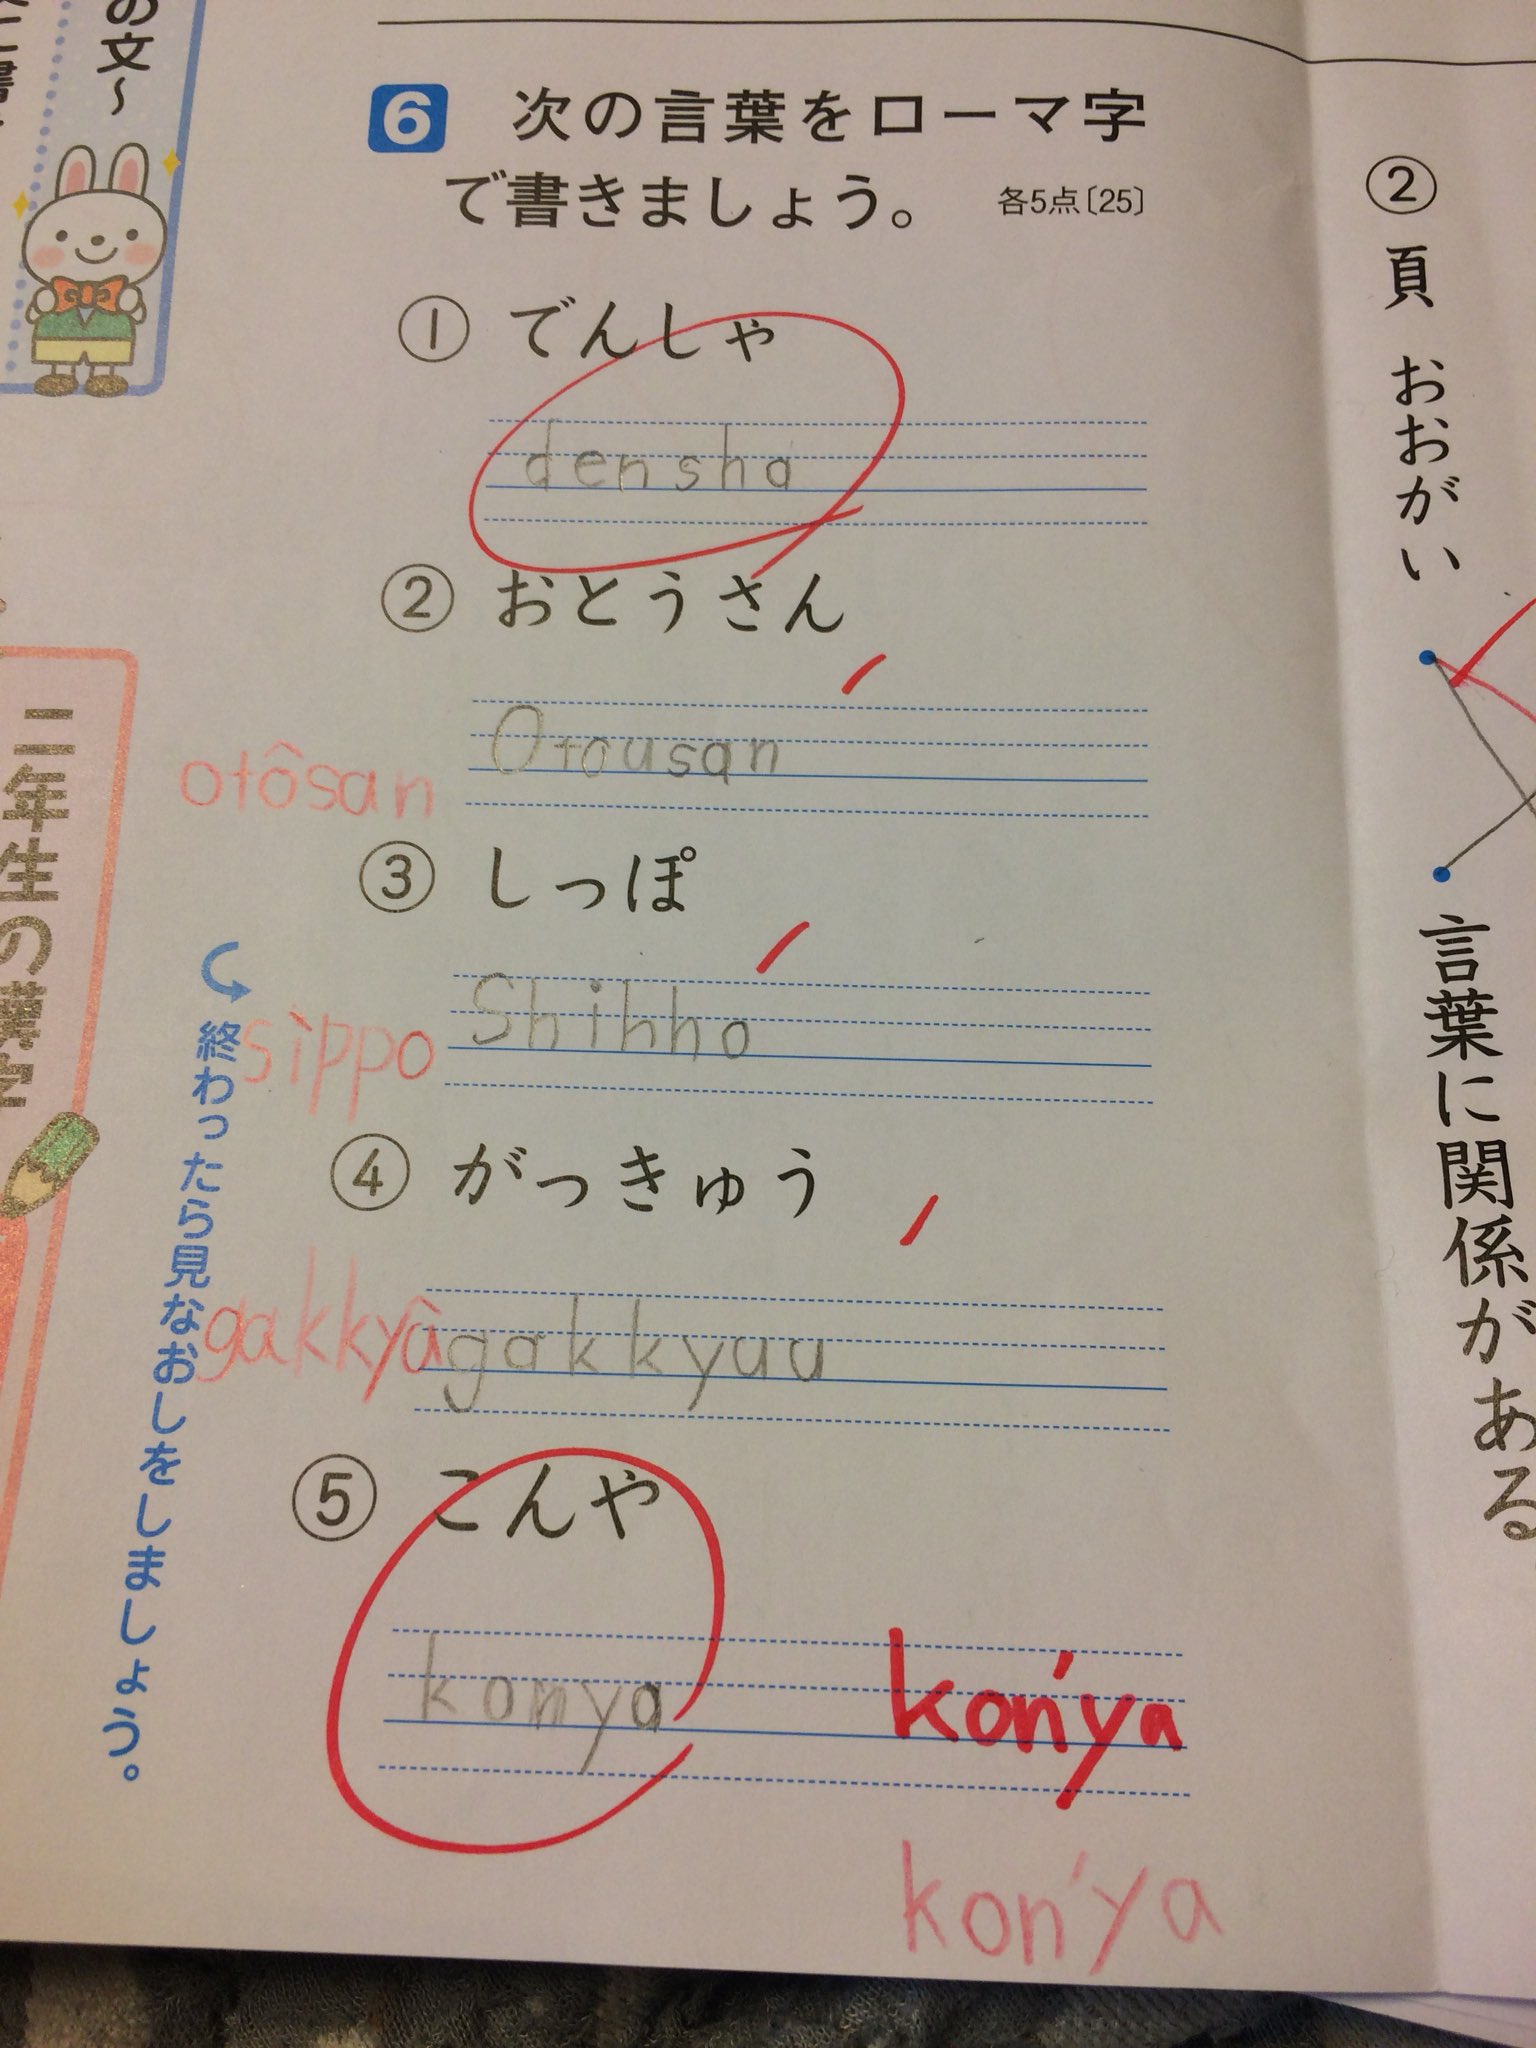 の文～
6 次の言葉をローマ字
で書きましょう。 各5点〔25〕
① でんしゃ
densha
② おとうさん
Otousan
otôsan
③ しっぽ
Shihho
sippo
④ がっきゅう
gakkyuu
gakkyû
⑤ こんや
konya
kon'ya
kon'ya
終わったら見なおしをしましょう。
三年生の漢字
② 頁 おおがい
言葉に関係がある